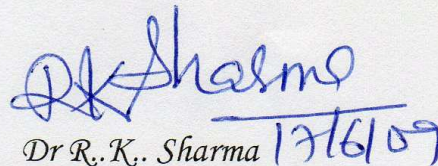 RKSharma
Dr R..K.. Sharma 17/6/09